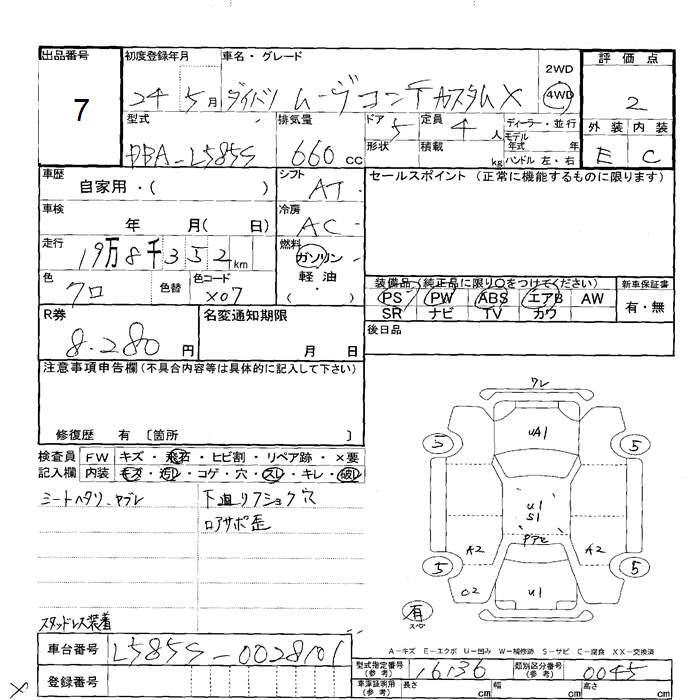 出品番号 初度登録年月 車名・グレード 2WD 評価点
7 24 5月 ダイハツ ムーヴコンテカスタムX 4WD 2
型式 排気量 ドア 5 定員 4 人 ディーラー・並行 外装 内装
DBA-L585S 660 cc 形状 積載 kg モデル年式 年 ハンドル 左・右 E C
車歴 自家用・( ) シフト AT セールスポイント (正常に機能するものに限ります)
車検 年 月( 日) 冷房 AC
走行 19万8千352km 燃料 ガソリン
軽油
・
( )
色 クロ 色替 色コード X07
装備品 (純正品に限り○をつけてください) 新車保証書
PS PW ABS エアB AW 有・無
SR ナビ TV カワ
R券 8.280円 名変通知期限 月 日 後日品
注意事項申告欄 (不具合内容等は具体的に記入して下さい)
修復歴 有 〔箇所 〕
検査員 FW キズ・飛石・ヒビ割・リペア跡・×要
記入欄 内装 キズ・汚レ・コゲ・穴・スレ・キレ・破レ
シートヘタリ、ヤブレ 下廻リフショック穴
ロアサポ歪
スタッドレス装着
ワレ
UA1
5 5
U1
S1
A2 A2
5 5
02 U1
有
スペア
A-キズ E-エクボ U-凹み W-補修跡 S-サビ C-腐食 XX-交換済
車台番号 L585S-0028101
登録番号
型式指定番号 (参考) 16136 類別区分番号 (参考) 0045
車庫証明用 (参考) 長さ cm 幅 cm 高さ cm